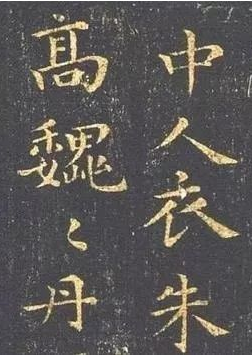 中人衣朱
高魏〻丹